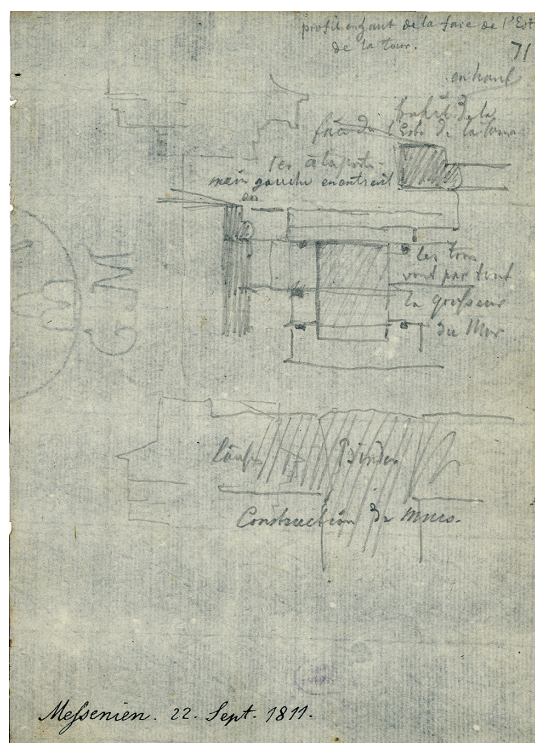 profil en haut de la face de l'Est
de la tour.
71
en haut
de la
face de l'Est de la
1er à la porte
main gauche en entrant
les trous
vont par tout
la grosseur
du Mur
Läufer Binder
Construction du murs.
Messenien. 22. Sept. 1811.